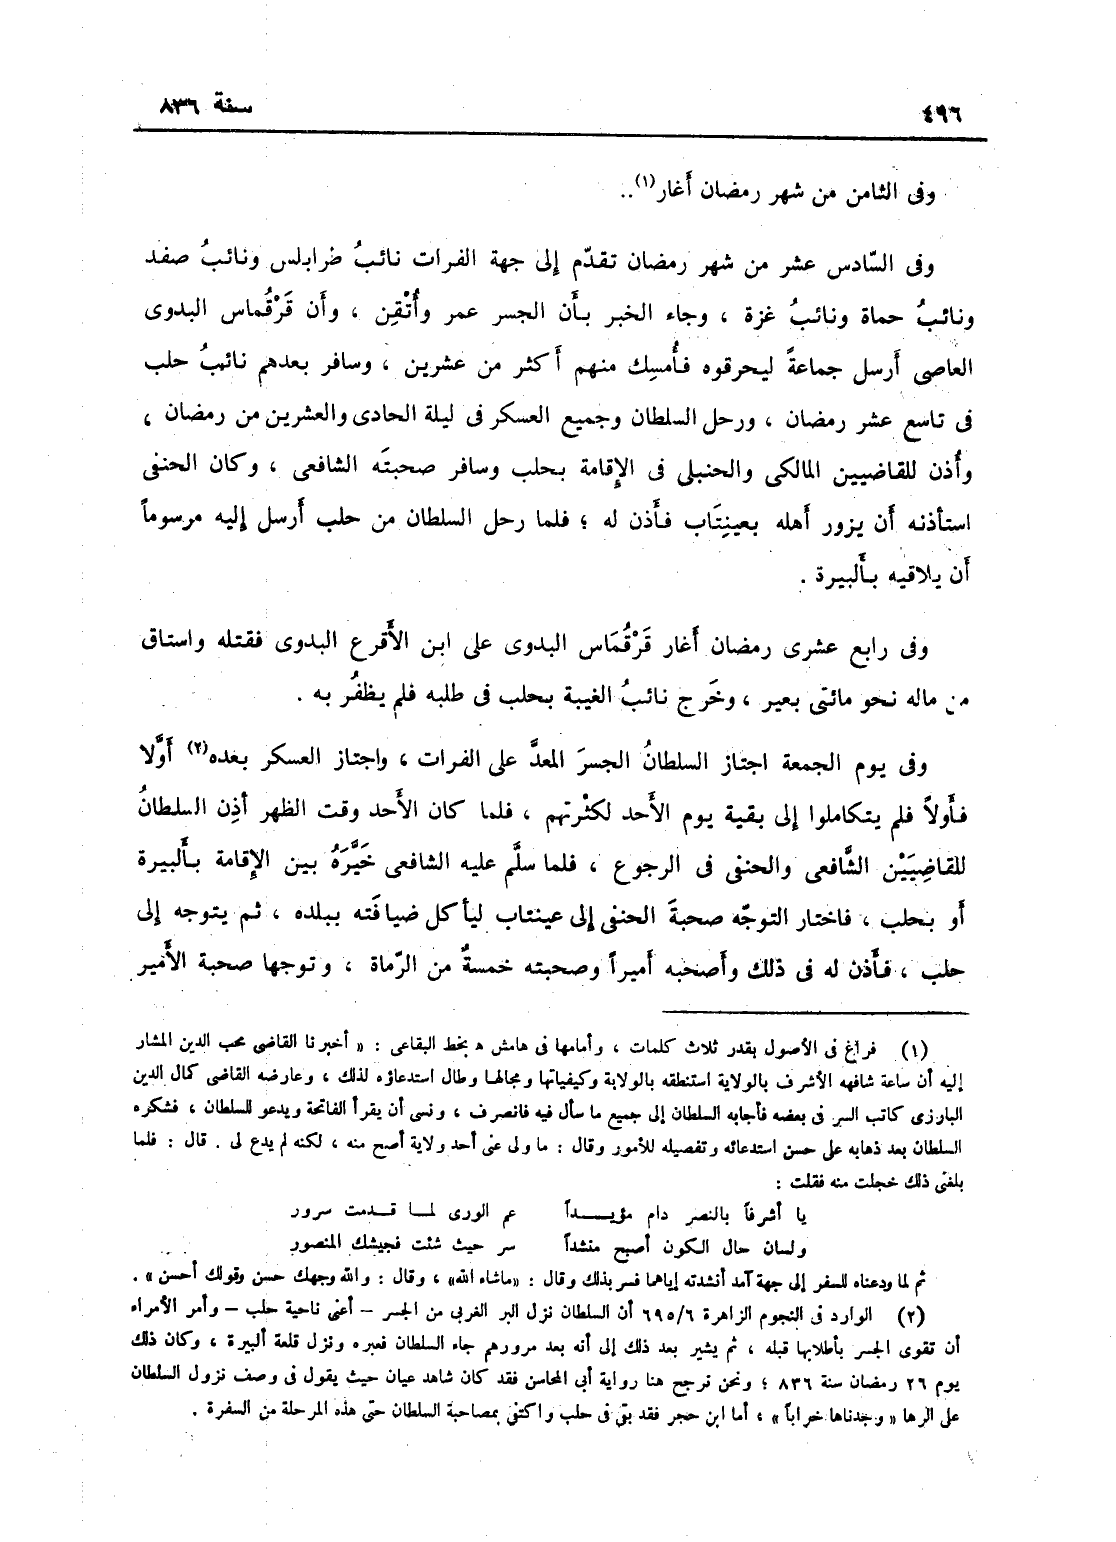 ٤٩٦
سنة ٨٣٦
وفى الثامن من شهر رمضان أَغار(١)..
وفى السّادس عشر من شهر رمضان تقدّم إلى جهة الفرات نائبُ طرابلس ونائبُ صفد
ونائبُ حماة ونائبُ غزة ، وجاء الخبر بأَن الجسر عمر وأُتْقِن ، وأَن قَرْقُماس البدوى
العاصى أَرسل جماعةً ليحرقوه فأُمسِك منهم أَكثر من عشرين ، وسافر بعدهم نائبُ حلب
فى تاسع عشر رمضان ، ورحل السلطان وجميع العسكر فى ليلة الحادى والعشرين من رمضان ،
وأُذن للقاضيين المالكى والحنبلى فى الإِقامة بحلب وسافر صحبتَه الشافعى ، وكان الحنفى
استأذنه أَن يزور أهله بعينِتَاب فأَذن له ؛ فلما رحل السلطان من حلب أَرسل إليه مرسوماً
أَن يلاقيه بأَلبيرة .
وفى رابع عشرى رمضان أَغار قَرْقُمَاس البدوى على ابن الأَقرع البدوى فقتله واستاق
من ماله نحو مائتى بعير ، وخَرج نائبُ الغيبة بحلب فى طلبه فلم يظفُر به .
وفى يوم الجمعة اجتاز السلطانُ الجسرَ المعدَّ على الفرات ، واجتاز العسكر بعده(٢) أَوَّلا
فأَولاً فلم يتكاملوا إلى بقية يوم الأَحد لكثْرتهم ، فلما كان الأَحد وقت الظهر أذِن السلطانُ
للقاضِيَيْن الشَّافعى والحنفى فى الرجوع ، فلما سلَّم عليه الشافعى خَيَّرَهُ بين الإقامة بأَلبيرة
أَو بحلب ، فاختار التوجّه صحبةَ الحنفى إلى عينتاب ليأكل ضيافَته ببلده ، ثم يتوجه إلى
حلب ، فأَذن له فى ذلك وأَصحبه أَميراً وصحبته خمسةٌ من الرّماة ، وتوجها صحبة الأَمير
(١) فراغ فى الأصول بقدر ثلاث كلمات ، وأمامها فى هامش ﻫ بخط البقاعى : « أخبرنا القاضى محب الدين المشار
إليه أن ساعة شافهه الأشرف بالولاية استنطقه بالولاية وكيفياتها ومجالها وطال استدعاؤه لذلك ، وعارضه القاضى كمال الدين
البارزى كاتب السر فى بعضه فأجابه السلطان إلى جميع ما سأل فيه فانصرف ، ونسى أن يقرأ الفاتحة ويدعو للسلطان ، فشكره
السلطان بعد ذهابه على حسن استدعائه وتفصيله للأمور وقال : ما ولى عنى أحد ولاية أصح منه ، لكنه لم يدع لى . قال : فلما
بلغنى ذلك خجلت منه فقلت :
يا أشرفاً بالنصر دام مؤيــداً عم الورى لمـا قـدمت سرور
ولسان حال الكون أصبح منشداً سر حيث شئت فجيشك المنصور
ثم لما ودعناه للسفر إلى جهة آمد أنشدته إياهما فسر بذلك وقال : «ماشاء الله» ، وقال : والله وجهك حسن وقولك أحسن » .
(٢) الوارد فى النجوم الزاهرة ٦٩٥/٦ أن السلطان نزل البر الغربى من الجسر – أعنى ناحية حلب – وأمر الأمراء
أن تقوى الجسر بأطلابها قبله ، ثم يشير بعد ذلك إلى أنه بعد مرورهم جاء السلطان فعبره ونزل قلعة ألبيرة ، وكان ذلك
يوم ٢٦ رمضان سنة ٨٣٦ ؛ ونحن نرجح هنا رواية أبى المحاسن فقد كان شاهد عيان حيث يقول فى وصف نزول السلطان
على الرها « وجدناها خراباً » ، أما ابن حجر فقد بقى فى حلب واكتفى بمصاحبة السلطان حتى هذه المرحلة من السفرة .